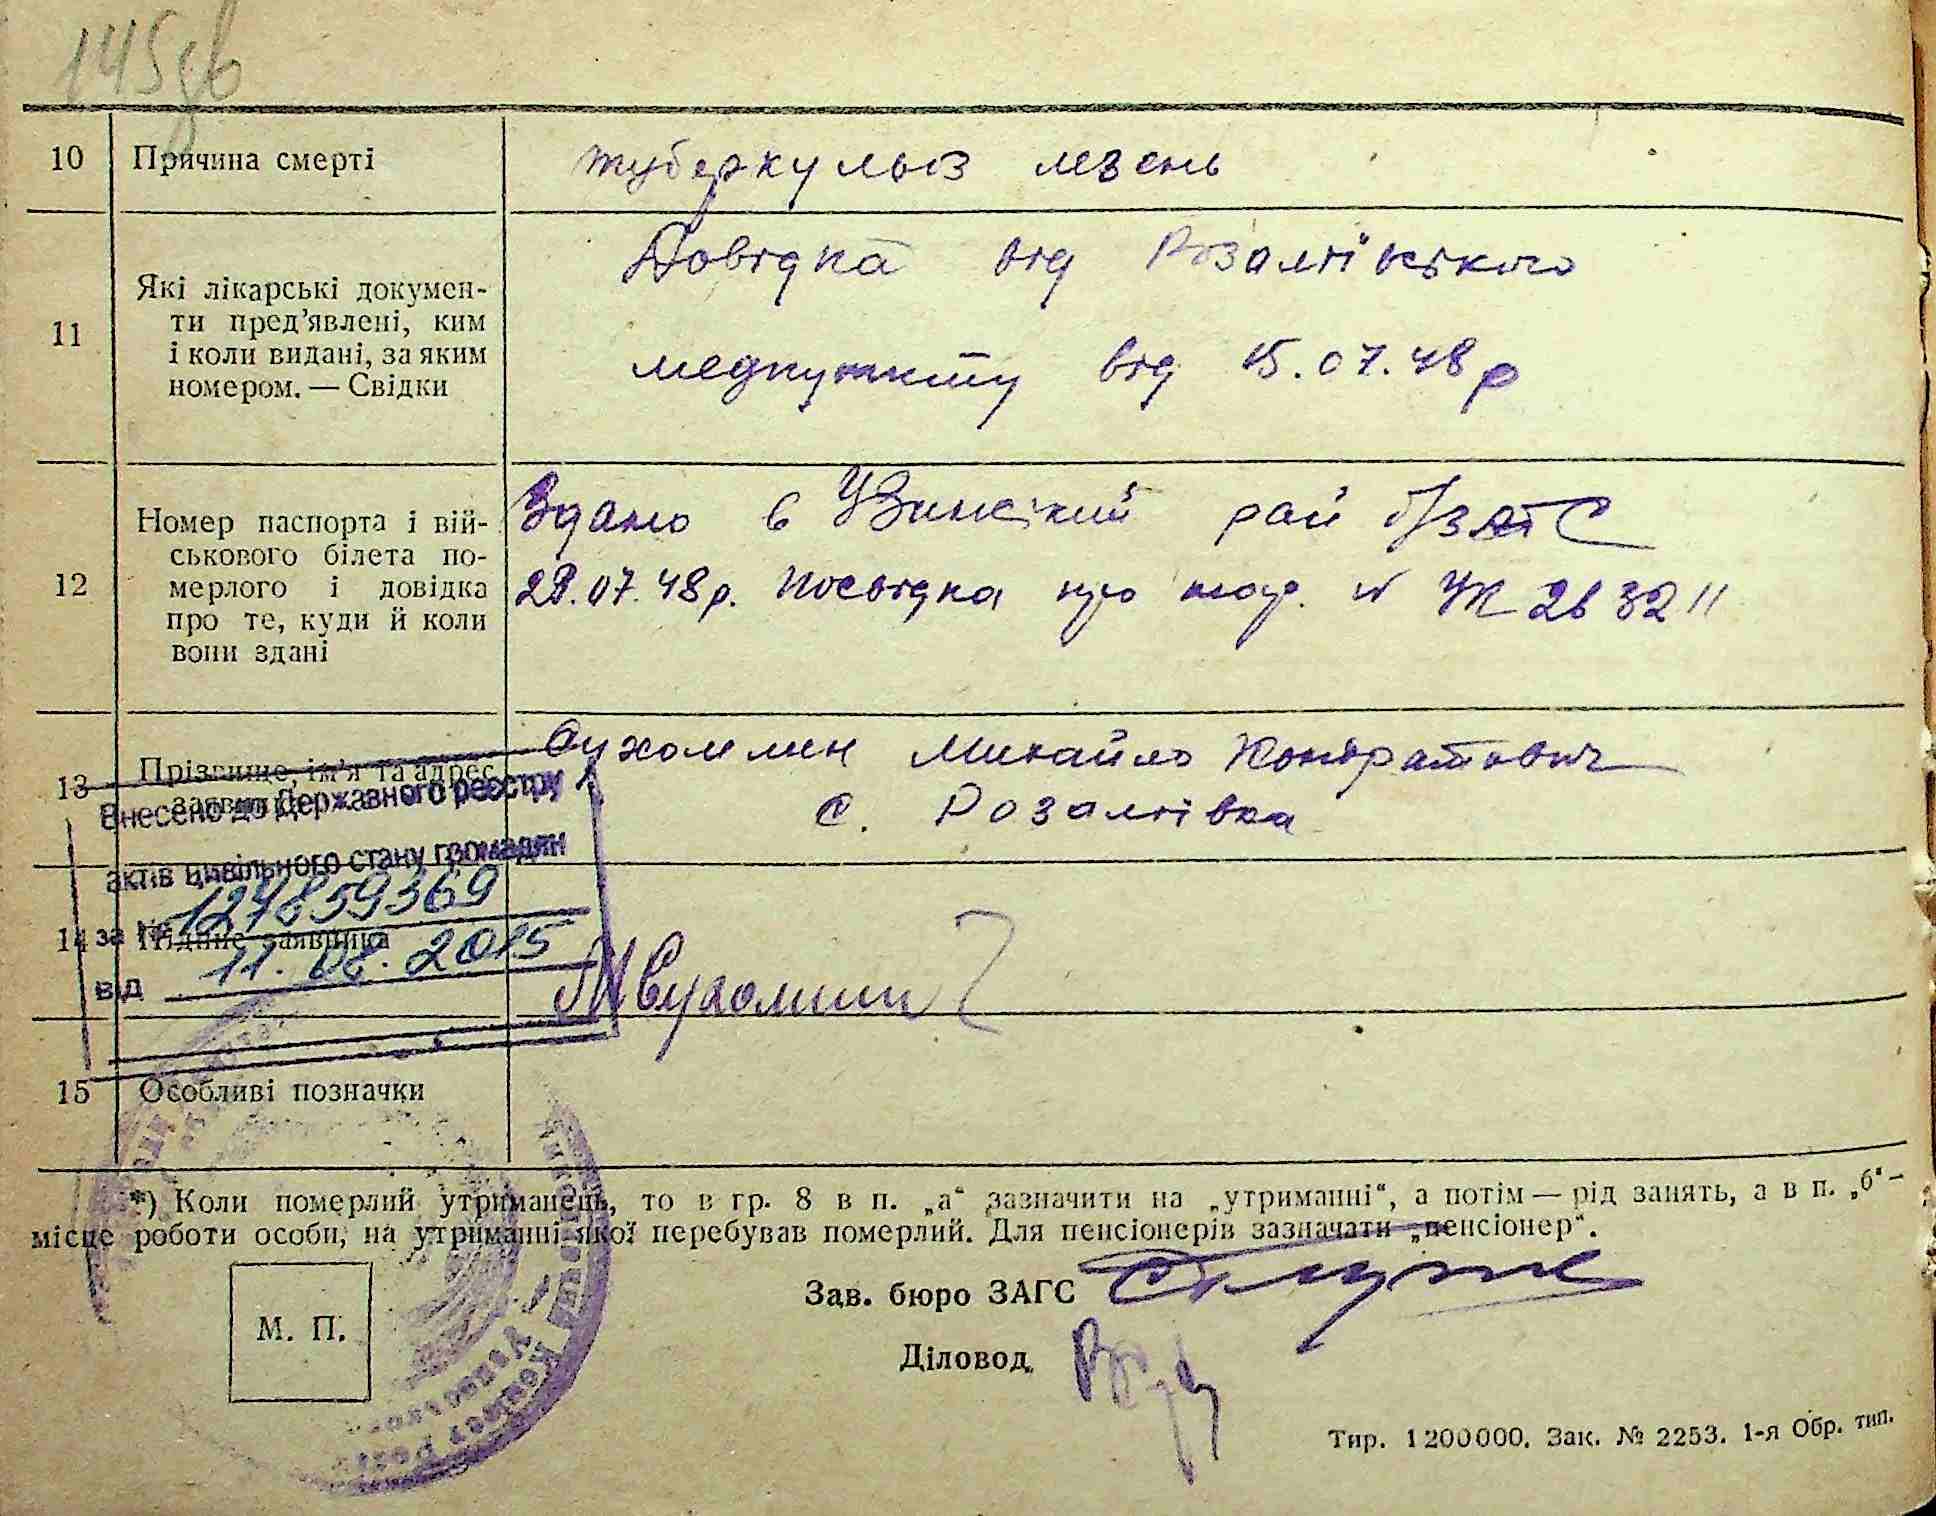 145дв
10 Причина смерті
туберкульоз легень
11 Які лікарські докумен-
ти пред’явлені, ким
і коли видані, за яким
номером. — Свідки
Довідка від Розаліївського
медпункту від 15.07.48 р
12 Номер паспорта і вій-
ськового білета по-
мерлого і довідка
про те, куди й коли
вони здані
Здано в Узинський рай б/ЗАГС
28.07.48 р. Посвідка про тод. № УЖ 263211
13 Прізвище, ім’я та адрес
заявника
Сухомлин Михайло Кондратович
с. Розаліївка
Внесено до Державного реєстру
актів цивільного стану громадян
за № 127859369
від 11.08.2015
14 Підпис заявника
МСухомлин
15 Особливі позначки
*) Коли померлий утриманець, то в гр. 8 в п. „а“ зазначити на „утриманні“, а потім — рід занять, а в п. „б“ —
місце роботи особи, на утриманні якої перебував померлий. Для пенсіонерів зазначати „пенсіонер“.
Зав. бюро ЗАГС
М. П.
Діловод
Тир. 1 200 000. Зак. № 2253. 1-я Обр. тип.